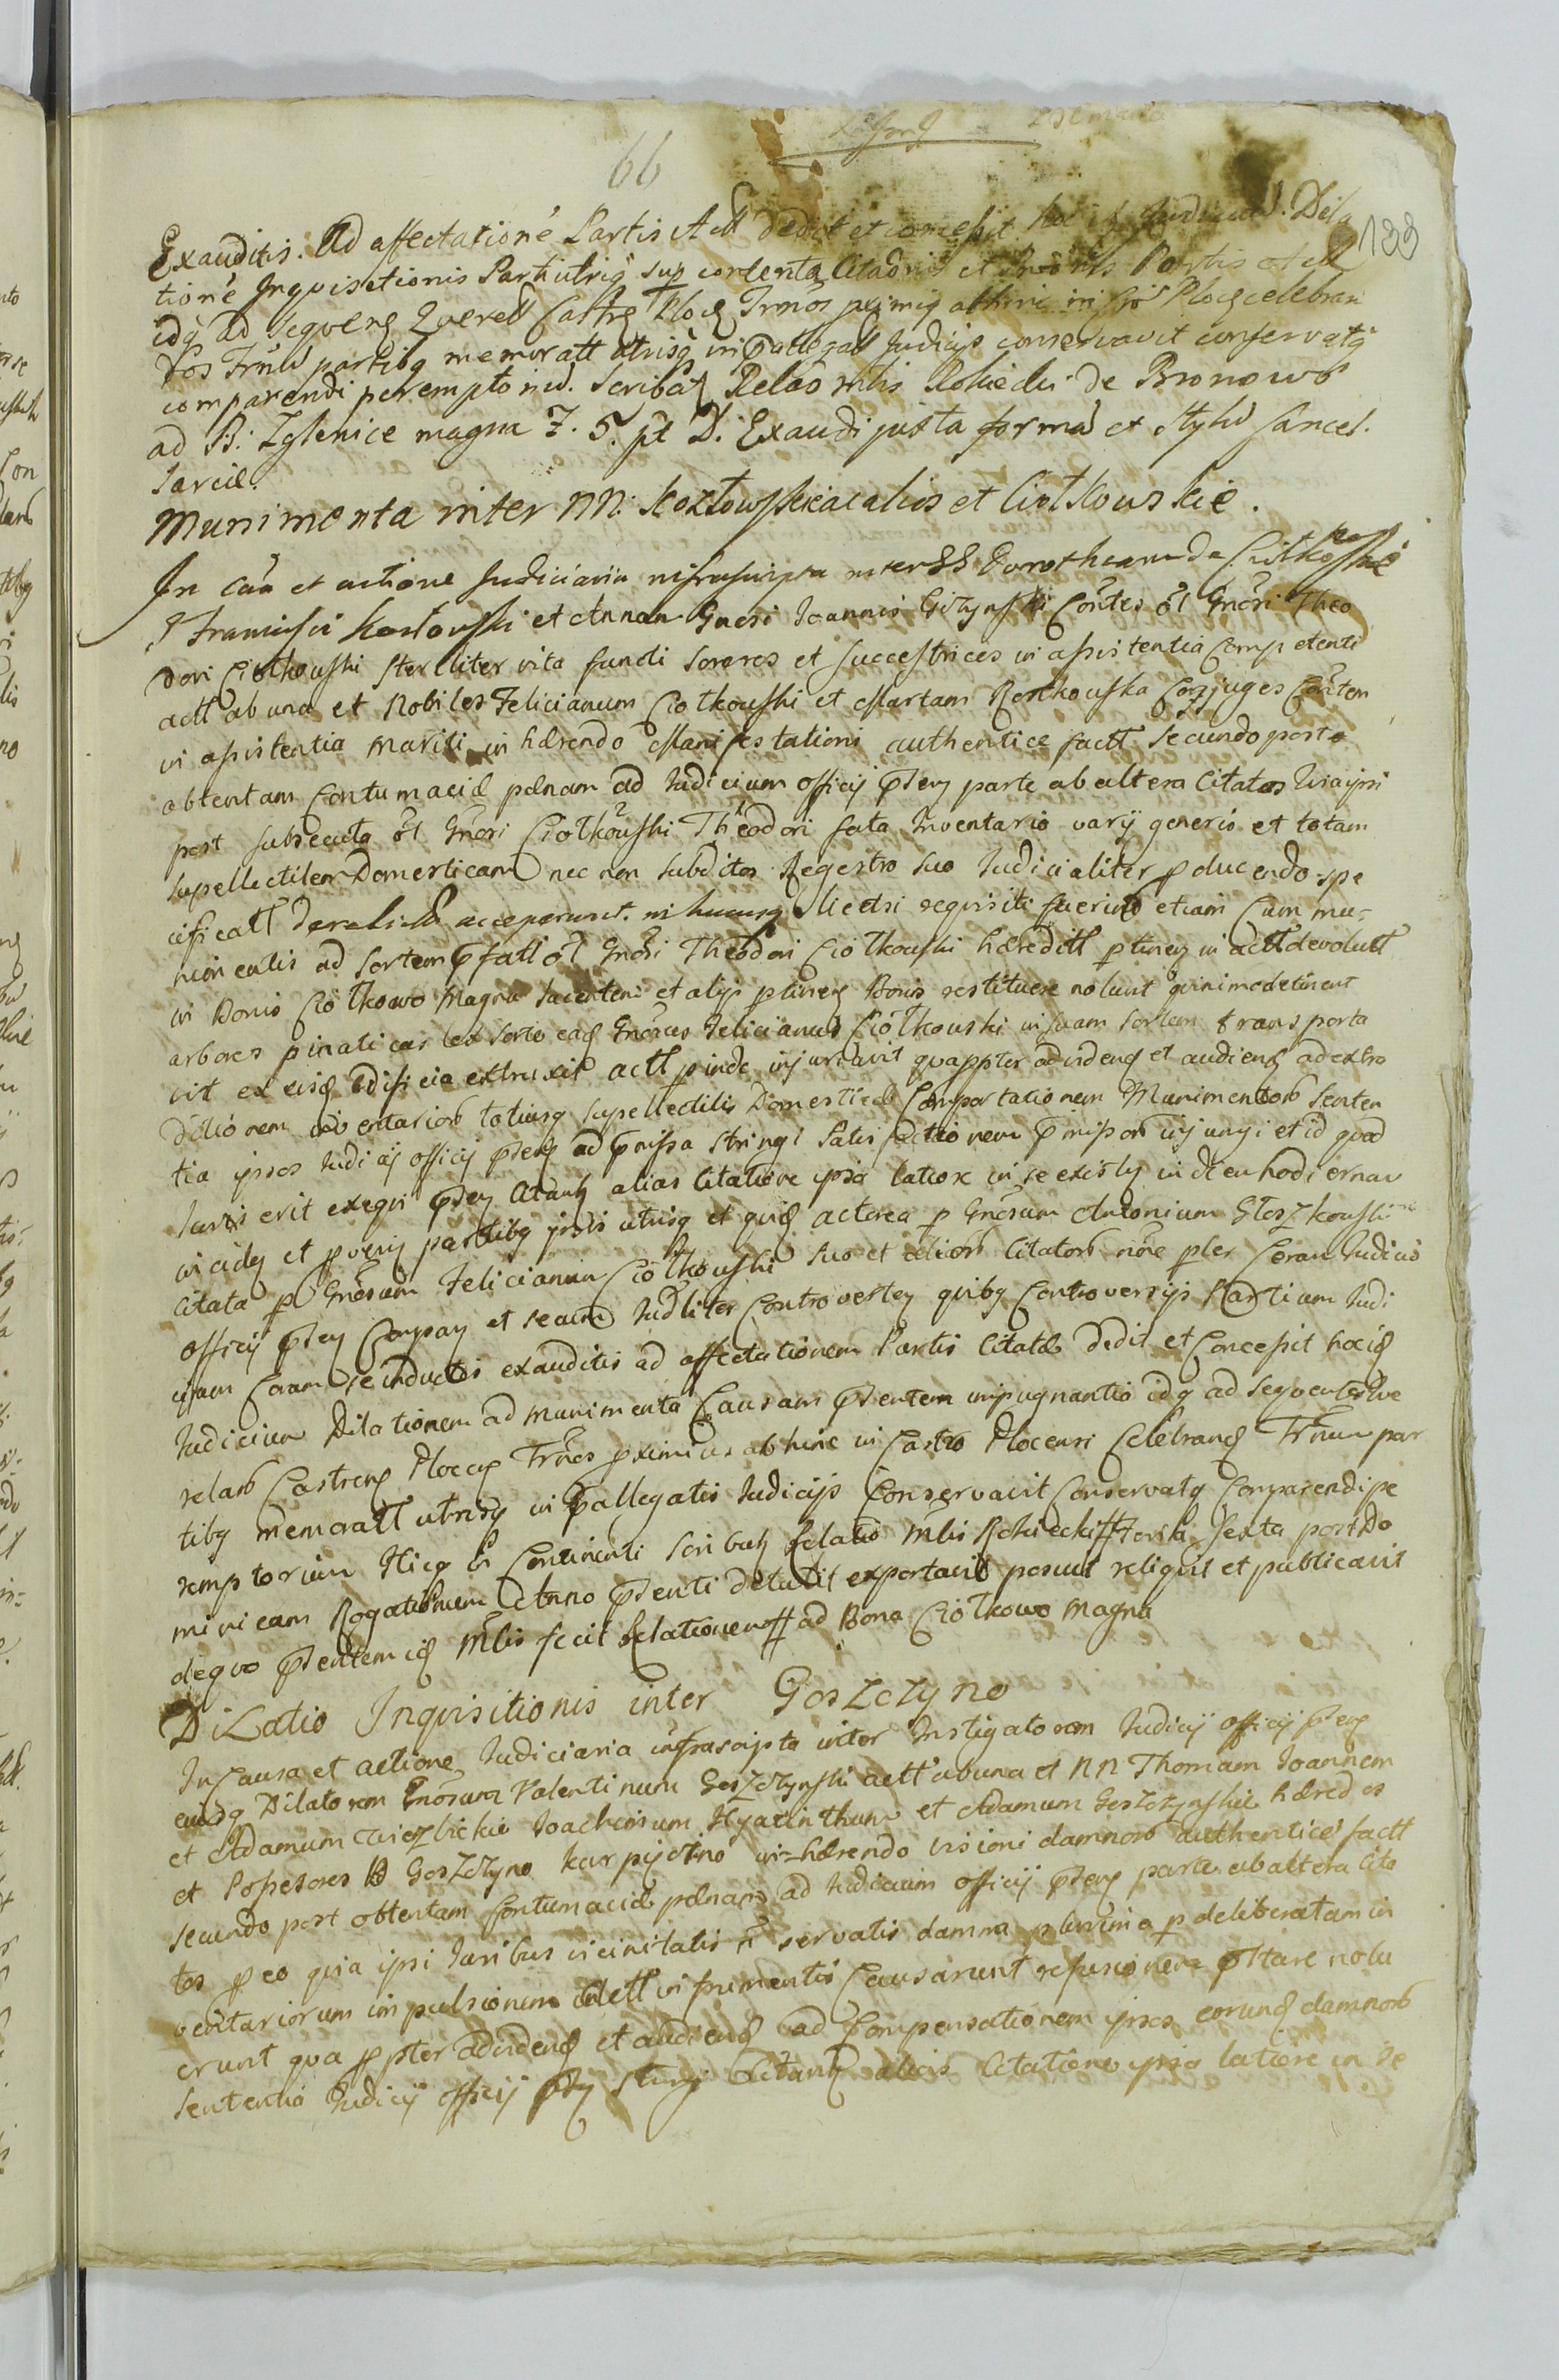 66
133
Exauditis. Ad affectationē Partis Act dedit et concessit hoc id Judiciū. Dila
tionē Inquisitionis Parti utriq sup contenta Citaōnis et Partis Act
idq ad sequenq Querell Castrq Plocq Trmōs pximiq abhinc in Plocq celebran
dos Trmū partibq memoratt utrisq in pallegatt Judicijs conservavit conservatq
comparendi peremptoriū. Scribatq Relaō mlis Rokicki de Bronowo
ad B: Zglenice magna F. 5. pt D. Exaudi juxta formā et stylū Cancel.
lariæ.
Munimenta inter NN. Kozłowskie ac alios et Ciołkowskie.
In cāa et actione Judiciaria infrascripta inter GG Dorotheam de Ciołkowskie
Francisci Kozłowski et Annam Gnosi Joannis Giżynski Cōntes ōl Gnōsi Theo
dori Ciołkowski steriliter vita functi sorores et successtrices in assistentia Competenti
actt ab una et Nobiles Felicianum Ciołkowski et Martam Rostkowska Conjuges Cōntem
in assistentia mariti in hærendo Manifestationi authentice factt secundo post
obtentam Contumaciæ pænam ad Judicium officij psenq parte ab altera Citatos Quia ipsi
post subsecuta ōl Gnōsi Ciołkowski Theodori fata Inventario varij generis et totam
supellectilem Domesticam nec non subditos Regestro suo Judicialiter pducendo spe
cificatt derelicta acceperunt. licetsi requisiti fuerint etiam Cum mu-
nimentis ad sortem pfatt ōl Gnōsi Theodori Ciołkowski hæreditt ptinenq in actt devolutt
in Bonis Ciołkowo Magna jacentem et alijs ptinenq Bonis restituere nolunt quinimo detinent
arbores pinaticas ex sorte eadq Gnōsus Felicianus Ciołkowski in suam sortem transporta
vit ex eisq ædificia extruxit actt pinde injuriavit quappter ad vidend et audiend ad extra
ditionem inventarior totiusq supellectilis Domesticæ Comportationem Munimentor Senten
tia ipsos Judicij officij psenq ad pmissa stringi Satisfactionem pmissor injungi et id quod
Juris erit exequi psenq Citantq alias Citatione ipsa latiore in se existenq in diem hodiernam
incidenq et pvenienq partibq ipsis utrisq et quidq actorea p Gnōsum Antonium Gloszkowski
Citata p Gnōsum Felicianum Ciołkowski suo et alior Citator nōie pter Coram Judicio
officij psenq Comparenq et secum Judliter Controvertenq quibq Controversijs Partium Judi
cium Coram se inductis exauditis ad affectationem Partis Citatæ Dedit et Concessit hoc idq
Judicium Dilationem ad munimenta Causam psentem impugnantia idq ad sequentes Que
relar Castrenq Plocenq Trnōs pximius abhinc in Castro Plocensi Celebrandq Trmum par
tibq memoratt utrisq in pallegatis Judicijs Conservavit Conservatq Comparendi pe
remptorium Hicq in Continenti scribatq Relatio Mlis Rokicki # Feria Sexta post Do
minicam Rogationum Anno psenti detulit exportavit posuit reliquit et publicavit
de quo psentem idq Mlis fecit Relationem # ad Bona Ciołkowo Magna
Dilatio Inquisitionis inter Goszczyno
In Causa et actione Judiciaria infrascripta inter Instigatorem Judicij officij psenq
eiusdq Dilatorem Gnōsum Valentinum Goszczynski actt ab una et NN Thomam Joannem
et Adamum Wierzbickie Joachimum Hyacinthum et Adamum Goszczynskie hæredes
et Possesores B Goszczyno Karpijotino in-hærendo visioni damnor authenticè factt
secundo post obtentam Contumaciæ pænam ad Judicium officij psenq parte ab altera Cita
tos p eo quia ipsi Juribus vicinitatis ñ servatis damna plurima p deliberatam in
ventariorum impulsionem actt in frumentis Causarunt refusionem pstare nolu
erunt qua ppter ad videndq et audiendq ad Compensationem ipsos eorundq damnor
Sententia Judicij officij psnq stringi Citantq alias Citatione ipsa latiore in se